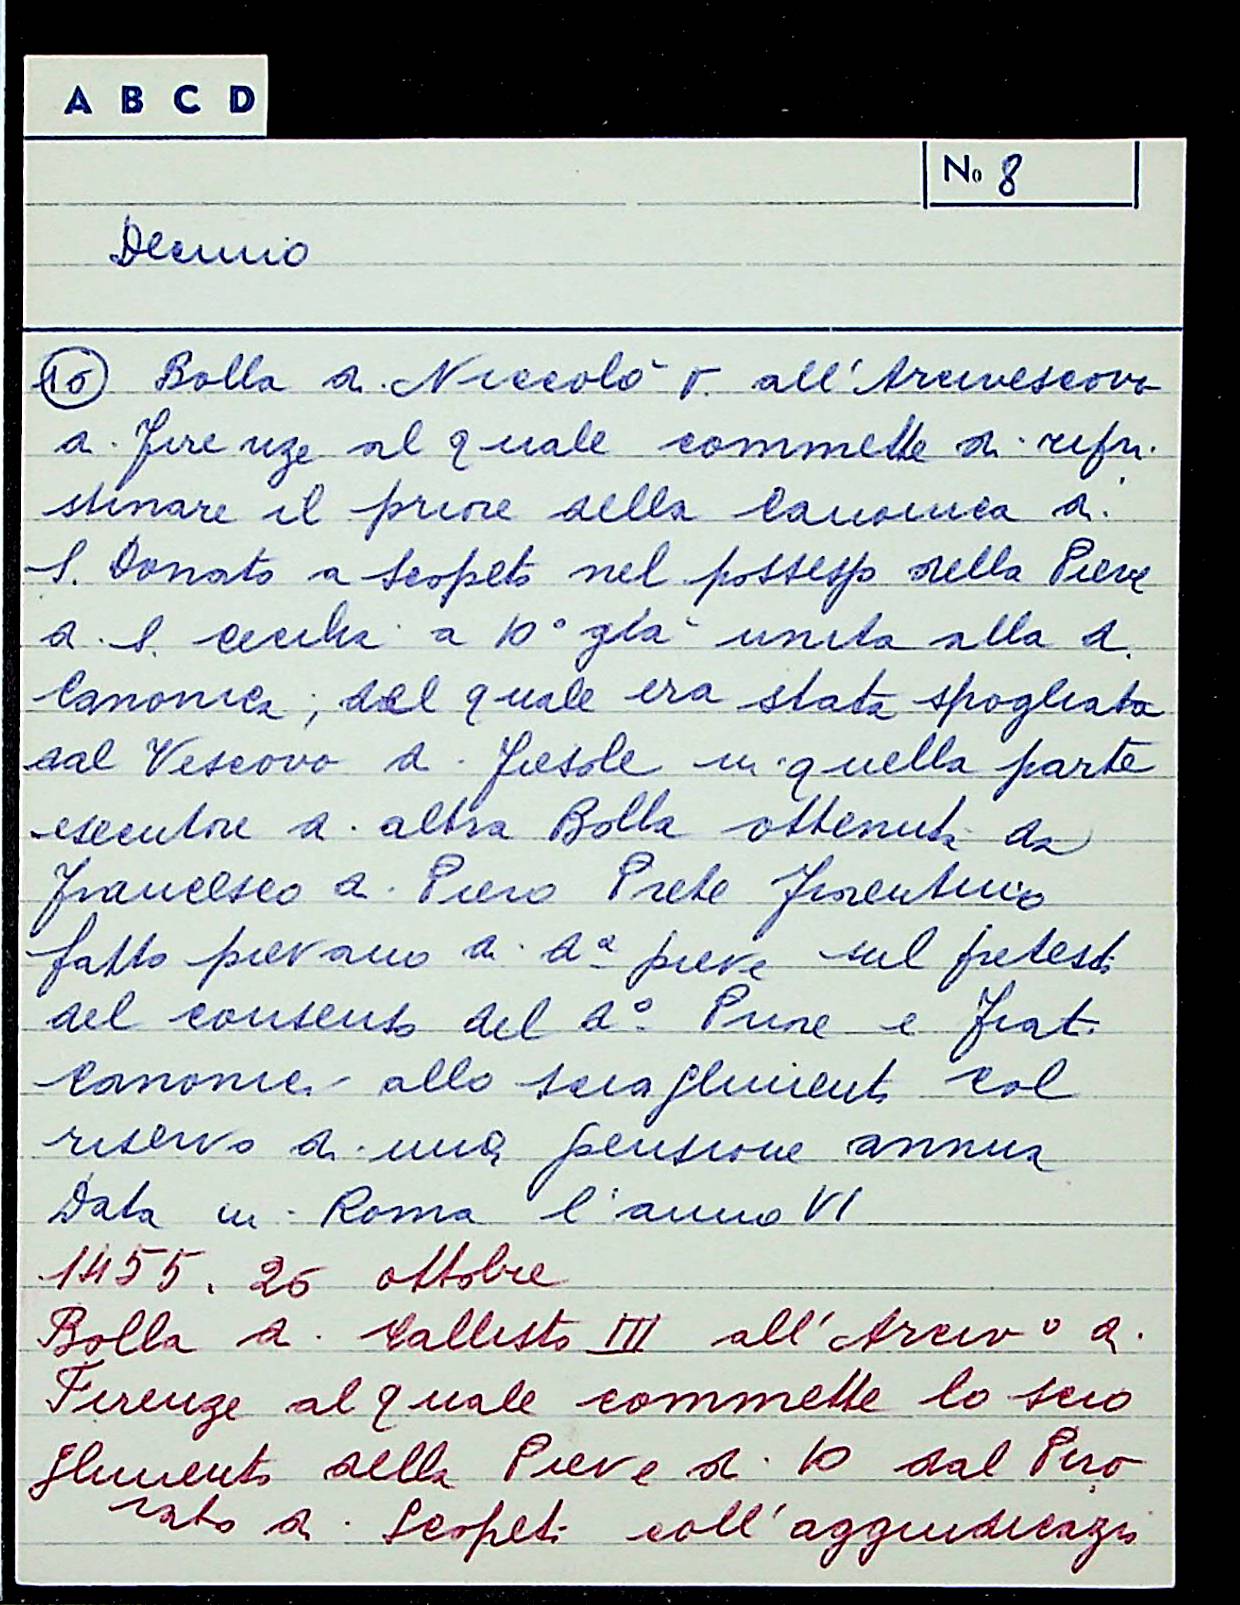 A B C D
No 8
Decimo
10 Bolla di Niccolò V. all'Arcivescovo
di Firenze al quale commette di ripri-
stinare il priore della Canonica di
S. Donato a Scopeto nel possesso della Pieve
di S. Cecilia a 10° già unita alla d.
Canonica, del quale era stata spogliata
dal Vescovo di Fiesole in quella parte
esecutore di altra Bolla ottenuta da
Francesco di Piero Prete Fiorentino
fatto pievano di dª pieve sul pretesto
del consenso del d° Priore e Frati
Canonici allo scioglimento col
riservo di una pensione annua
Data in Roma l'anno VI
1455. 26 ottobre
Bolla di Callisto III all'Arciv° di
Firenze al quale commette lo scio
glimento della Pieve di 10 dal Prio
rato di Scopeti coll'aggiudicazio